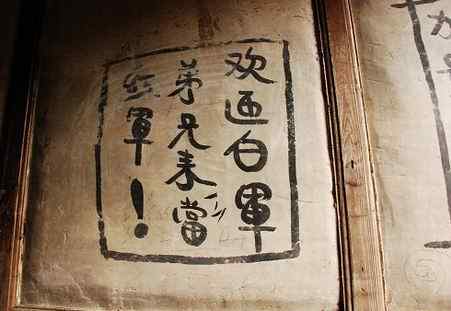 欢迎白軍
弟兄来當
红軍！